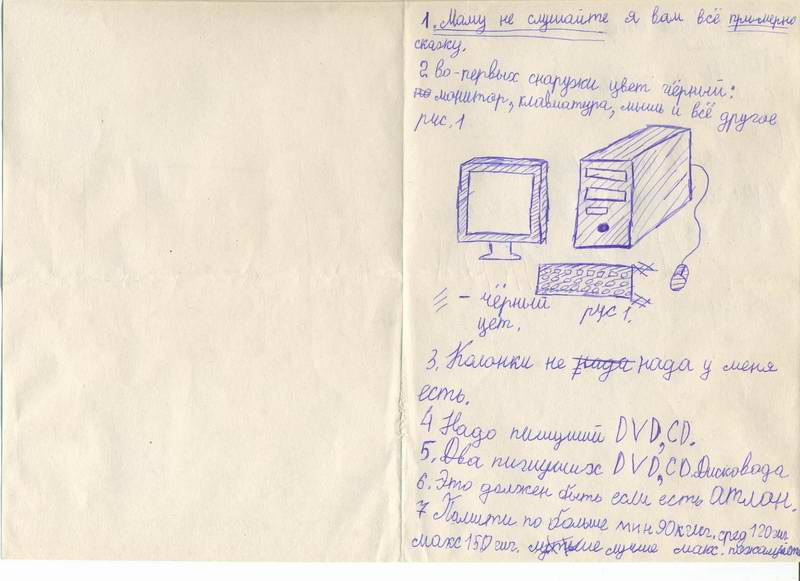 1. Маму не слушайте я вам всё примерно
скажу.
2 во-первых снаружи цвет чёрный:
монитор, клавиатура, мышь и всё другое
рис. 1
- чёрный
цет.
рис 1.
3. Колонки не нада нада у меня
есть.
4 Надо пишущий DVD, CD.
5. Два пишущих DVD, CD. Дисковада
6. Это должен быть если есть атлон.
7 Памяти по больше мин 90 гиг. сред 120 гиг
макс 150 гиг. лучше макс. пожалуйста